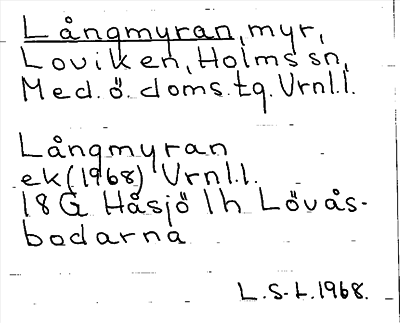 Långmyran, myr,
Loviken, Holms sn,
Med. ö. doms. tg. Vrnl.l.
Långmyran
ek (1968) Vrnl.l.
18 G Håsjö 1h Lövås-
bodarna
L.S-L. 1968.